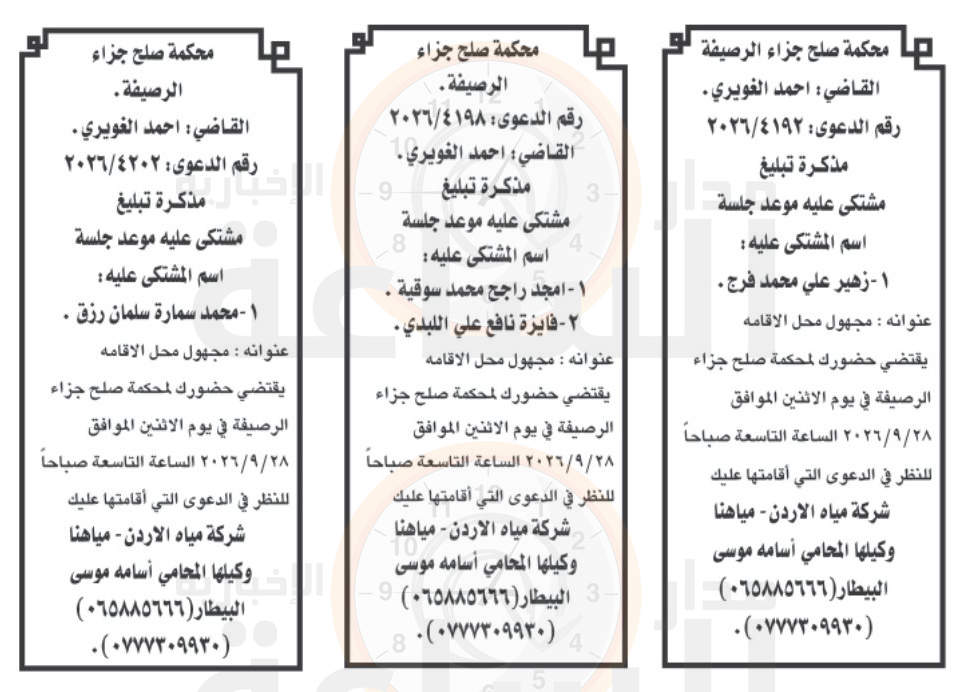 محكمة صلح جزاء الرصيفة
القاضي: احمد الغويري.
رقم الدعوى: ٢٠٢٦/٤١٩٢
مذكرة تبليغ
مشتكى عليه موعد جلسة
اسم المشتكى عليه:
١-زهير علي محمد فرج.
عنوانه : مجهول محل الاقامه
يقتضي حضورك لمحكمة صلح جزاء
الرصيفة في يوم الاثنين الموافق
٢٠٢٦/٩/٢٨ الساعة التاسعة صباحاً
للنظر في الدعوى التي أقامتها عليك
شركة مياه الاردن - مياهنا
وكيلها المحامي أسامه موسى
البيطار(٠٦٥٨٨٥٦٦٦)
(٠٧٧٧٣٠٩٩٣٠).
محكمة صلح جزاء
الرصيفة.
رقم الدعوى: ٢٠٢٦/٤١٩٨
القاضي: احمد الغويري.
مذكرة تبليغ
مشتكى عليه موعد جلسة
اسم المشتكى عليه:
١-امجد راجح محمد سوقية .
٢-فايزة نافع علي اللبدي.
عنوانه : مجهول محل الاقامه
يقتضي حضورك لمحكمة صلح جزاء
الرصيفة في يوم الاثنين الموافق
٢٠٢٦/٩/٢٨ الساعة التاسعة صباحاً
للنظر في الدعوى التي أقامتها عليك
شركة مياه الاردن - مياهنا
وكيلها المحامي أسامه موسى
البيطار(٠٦٥٨٨٥٦٦٦)
(٠٧٧٧٣٠٩٩٣٠).
محكمة صلح جزاء
الرصيفة.
القاضي: احمد الغويري.
رقم الدعوى: ٢٠٢٦/٤٢٠٢
مذكرة تبليغ
مشتكى عليه موعد جلسة
اسم المشتكى عليه:
١-محمد سمارة سلمان رزق .
عنوانه : مجهول محل الاقامه
يقتضي حضورك لمحكمة صلح جزاء
الرصيفة في يوم الاثنين الموافق
٢٠٢٦/٩/٢٨ الساعة التاسعة صباحاً
للنظر في الدعوى التي أقامتها عليك
شركة مياه الاردن - مياهنا
وكيلها المحامي أسامه موسى
البيطار(٠٦٥٨٨٥٦٦٦)
(٠٧٧٧٣٠٩٩٣٠).
مدار
الساعة
الإخبارية